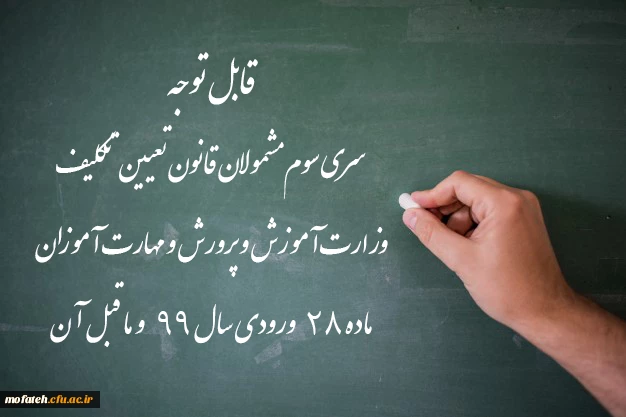 قابل توجه
سری سوم مشمولان قانون تعیین تکلیف
وزارت آموزش و پرورش و مهارت آموزان
ماده ۲۸ ورودی سال ۹۹ و ماقبل آن
mofateh.cfu.ac.ir